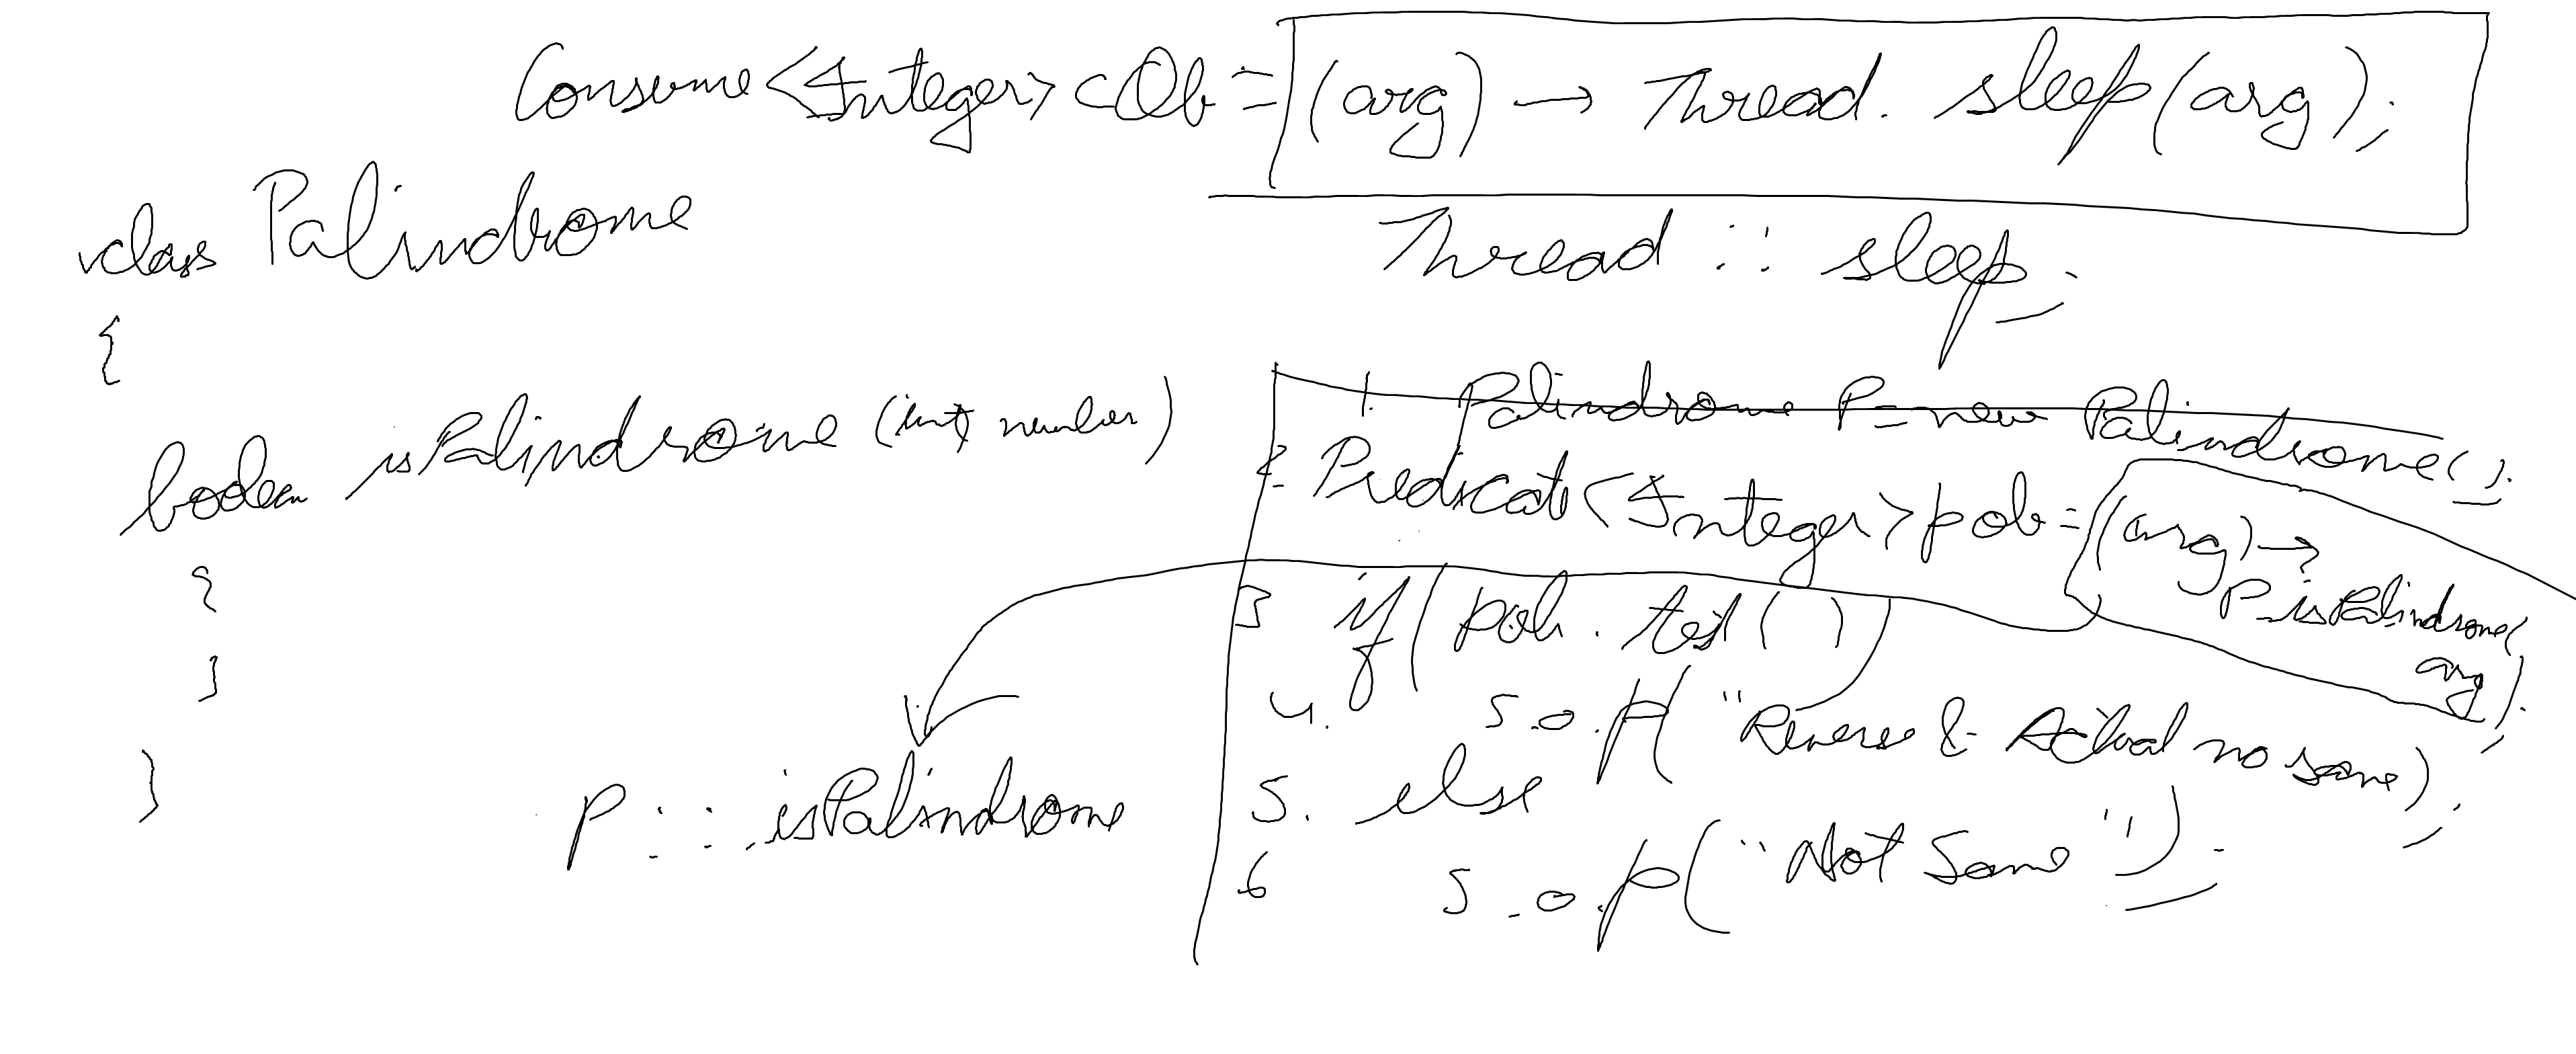 Consume<Integer> cOb = (arg) → Thread. sleep(arg);
Thread :: sleep;
class Palindrome
{
boolean isPalindrome (int number)
{
}
}
1. Palindrome P = new Palindrome();
2. Predicate<Integer> pob = (arg) →
P.isPalindrome(
arg);
3 if( pob. test( ) )
4. s.o.p( "Reverse & Actual no same);
5. else
6 s.o.p( "Not Same" );
P :: isPalindrome